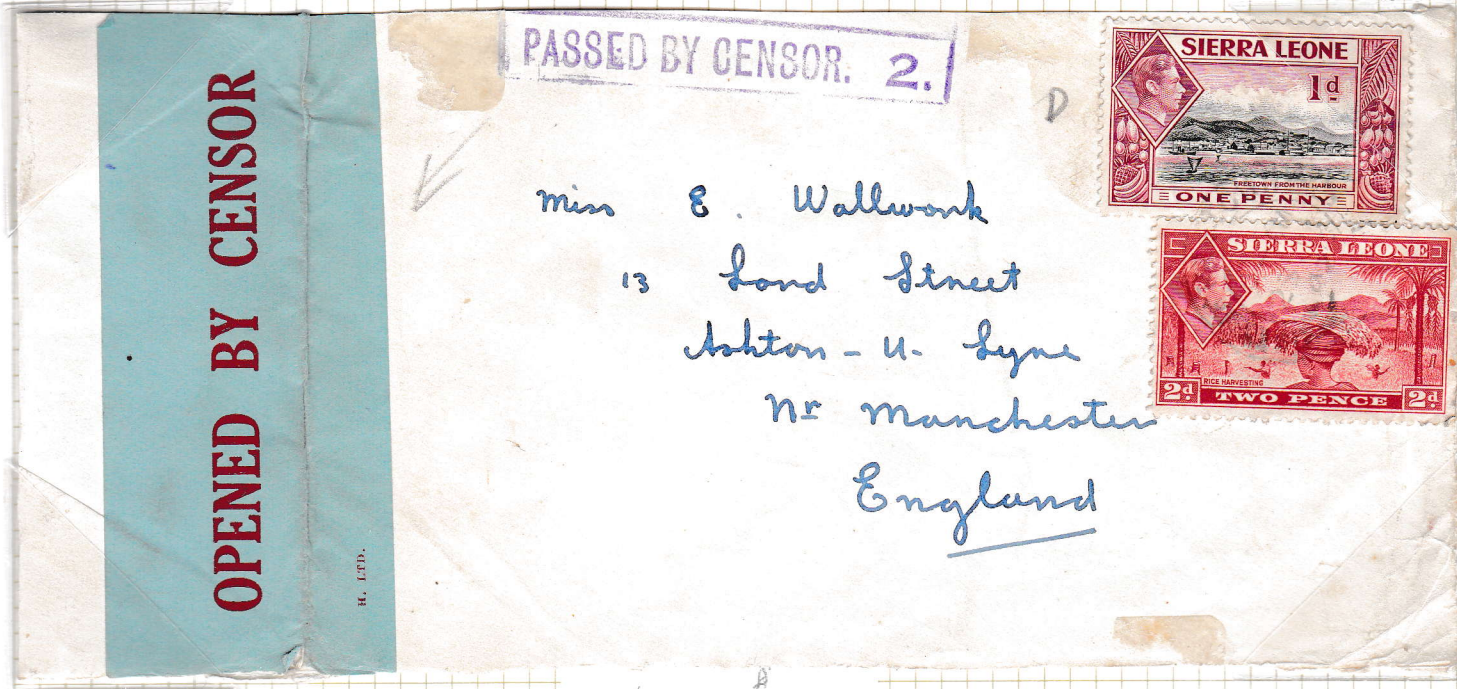 OPENED BY CENSOR
H. LTD.
PASSED BY CENSOR. 2.
D
SIERRA LEONE
1d
FREETOWN FROM THE HARBOUR
ONE PENNY
SIERRA LEONE
RICE HARVESTING
2d TWO PENCE 2d
Miss E. Wallwork
13 Lord Street
Ashton-U-Lyne
Nr Manchester
England